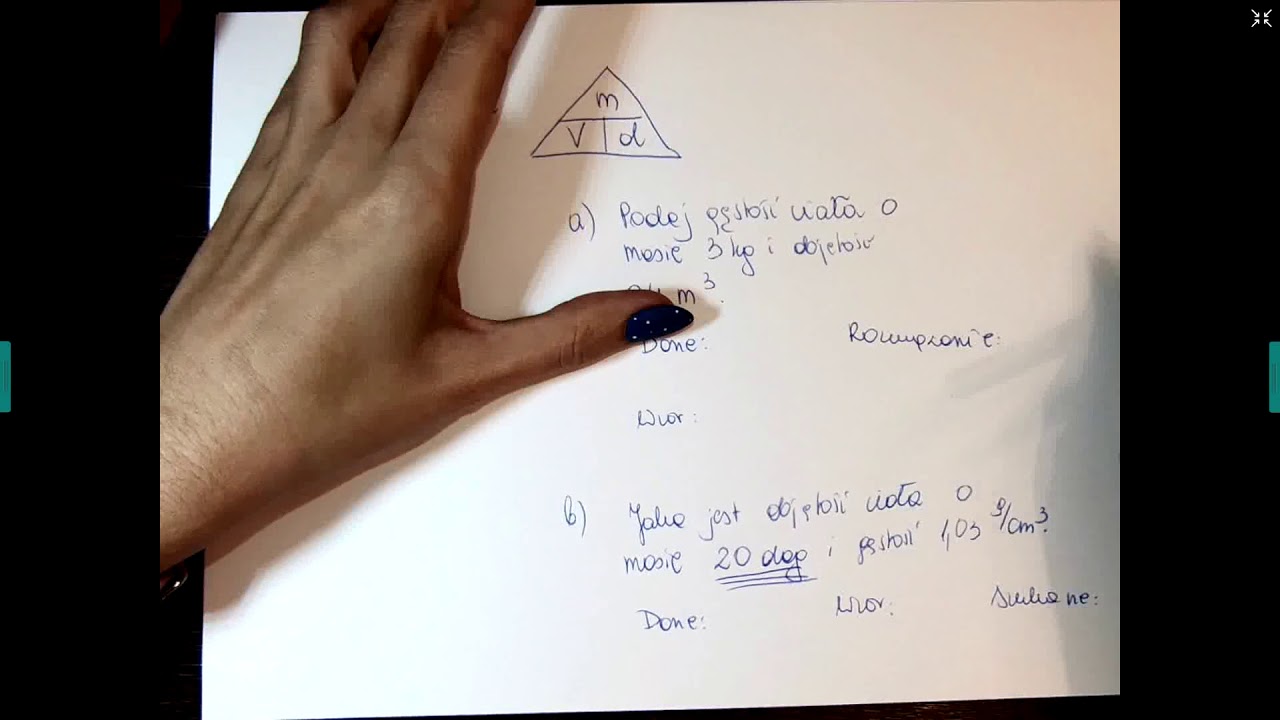 m
V d
a) Podaj gęstość ciała o
masie 3 kg i objętości
m³.
Dane: Rozwiązanie:
Wzór:
b) Jaka jest objętość ciała o
masie 20 dag i gęstość 1,03 g/cm³.
Dane: Wzór: Szukane: